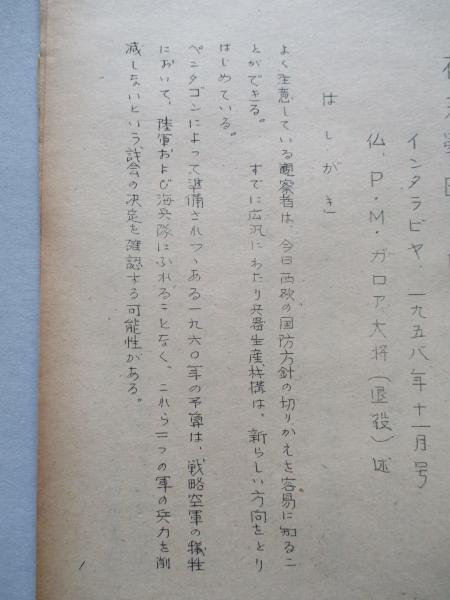 インタラビヤ 一九五八年十一月号
仏，P・M・ガロア大将（退役）述
はしがき
よく注意している観察者は、今日西欧の国防方針の切りかえを容易に知るこ
とができる。 すでに広汎にわたり兵器生産機構は、新らしい方向をとり
はじめている。
ペンタゴンによって準備されつゝある一九六〇年の予算は、戦略空軍の犠牲
において、陸軍および海兵隊にふれることなく、これら二つの軍の兵力を削
減しないという議会の決定を確認する可能性がある。
1